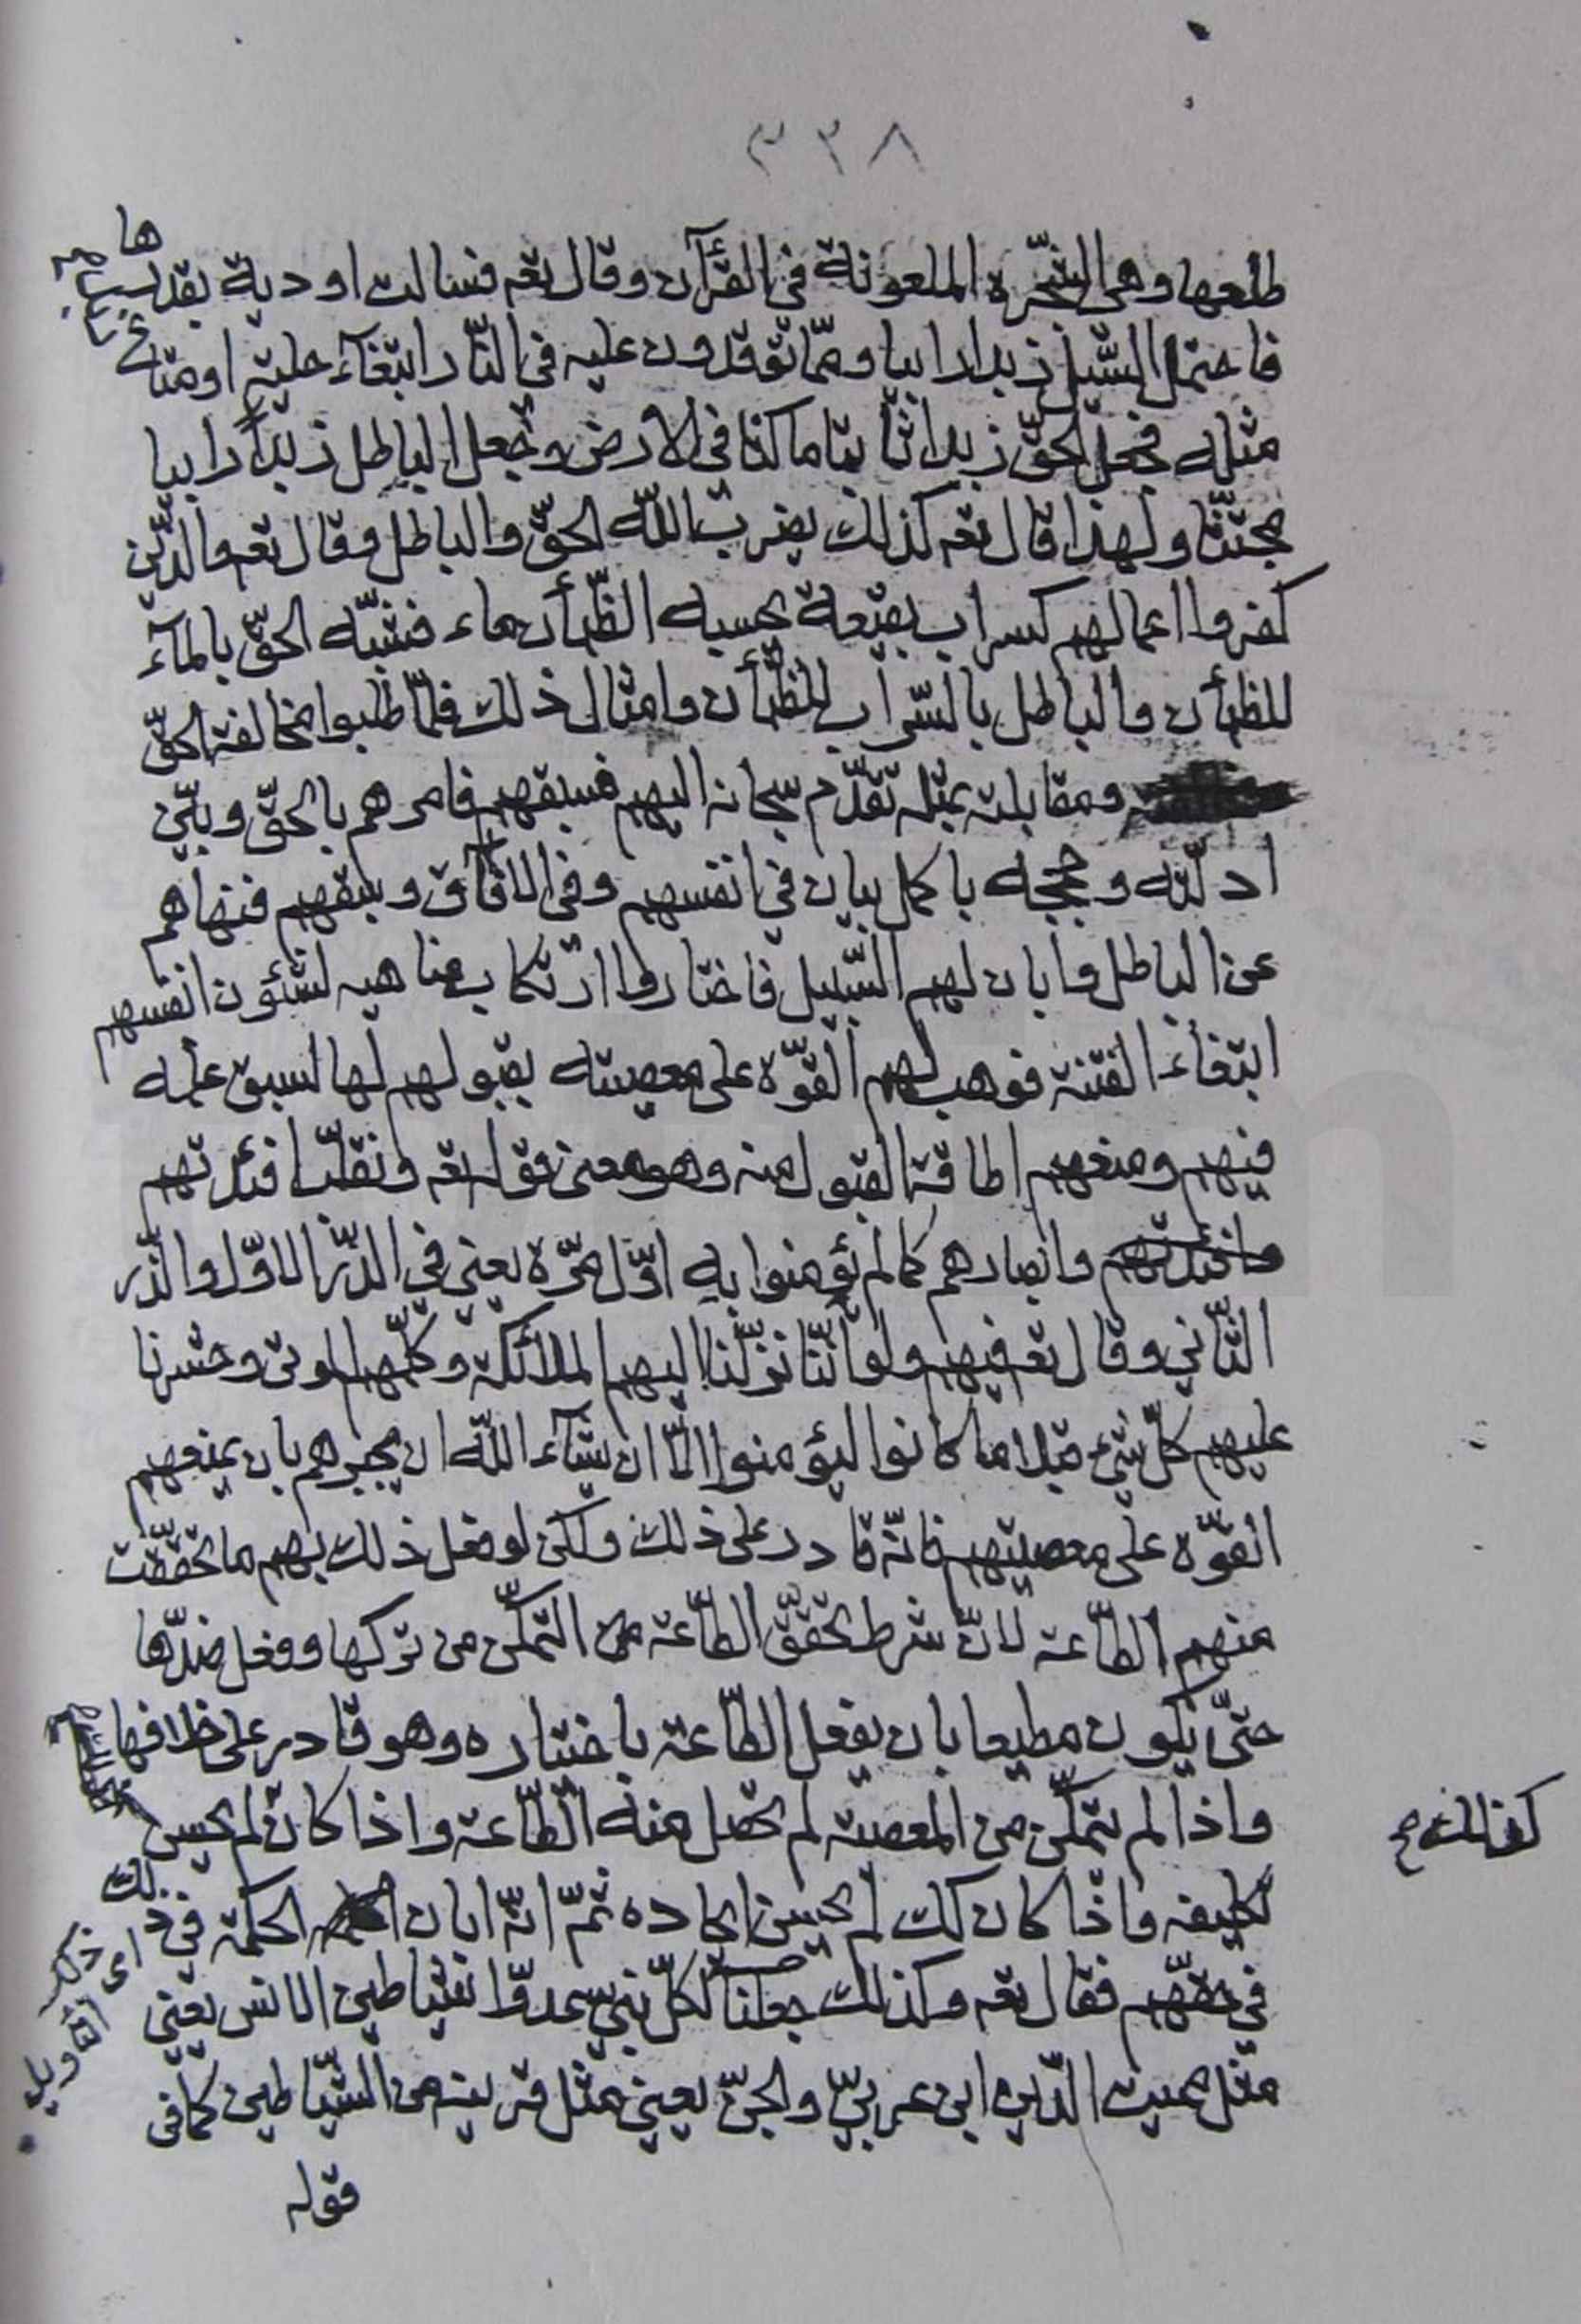 ٣٣٨
طلعها وهى الشّجرة الملعونة فى القرآن وقال تعه فسالت اودية بقدرها
فاحتمل السّيل زبدا رابيا وممّا توقدون عليه فى النّار ابتغآء حلية او متاع
مثله فجعل الحقّ زبدا ثابتا ماكثا فى الارض وجعل الباطل زبداً رابيا
مجتثّا ولهذا قال تعه كذلك يضرب اللّه الحقّ والباطل وقال تعه والّذين
كفروا اعمالهم كسراب بقيعة يحسبه الظّمأن ماء فشبّه الحقّ بالمآء
للظمأن والباطل بالسّراب للظّمأن وامثال ذلك فلمّا طلبوا مخالفة الحقّ
ومقابلته بمثله تقدّم سبحانه اليهم فسبقهم فامرهم بالحقّ وبيّن
ادلّته وحججه باكمل بيان فى انفسهم وفى الآفاق وسبقهم فنهاهم
عن الباطل وابان لهم السّبيل فاختاروا ارتكاب مناهيه لشئون انفسهم
ابتغاء الفتنة فوهب لهم القوّة على معصيته بقبولهم لها لسبق علمه
فيهم ومنعهم اطاقة القبول منه وهو معنى قوله تعه ونقلّب افئدتهم
وافئدتهم وابصارهم كما لم يؤمنوا به اوّل مرّة يعنى فى الذّر الاوّل والذّر
الثّانى وقال تعه فيهم ولو انّنا نزّلنا اليهم الملائكة وكلّمهم الموتى وحشرنا
عليهم كلّ شىء قبلا ما كانوا ليؤمنوا الّا ان يشآء اللّه ان يجبرهم بان يمنعهم
القوّة على معصيتهم فانّه قادر على ذلك ولكن لو فعل ذلك بهم ما تحقّقت
منهم الطّاعة لانّ شرط تحقّق الطّاعة من التمكّن من تركها وفعل ضدّها
حتّى يكون مطيعا بان يفعل الطّاعة باختياره وهو قادر على خلافها
واذا لم يتمكّن من المعصية لم تحصل منه الطّاعة واذا كان لم يحسن
كذلك صح
تكليفه واذا كان كك لم يحسن ايجاده ثمّ انّه ابان الحكمة فى ذلك
اى ذكر التأويل
فى حقّهم فقال تعه وكذلك جعلنا لكلّ نبىّ عدوّا شياطين الانس يعنى
مثل مميت الدّين ابن عربىّ والجنّ يعنى مثل قرينه من الشّياطين كما فى
قوله